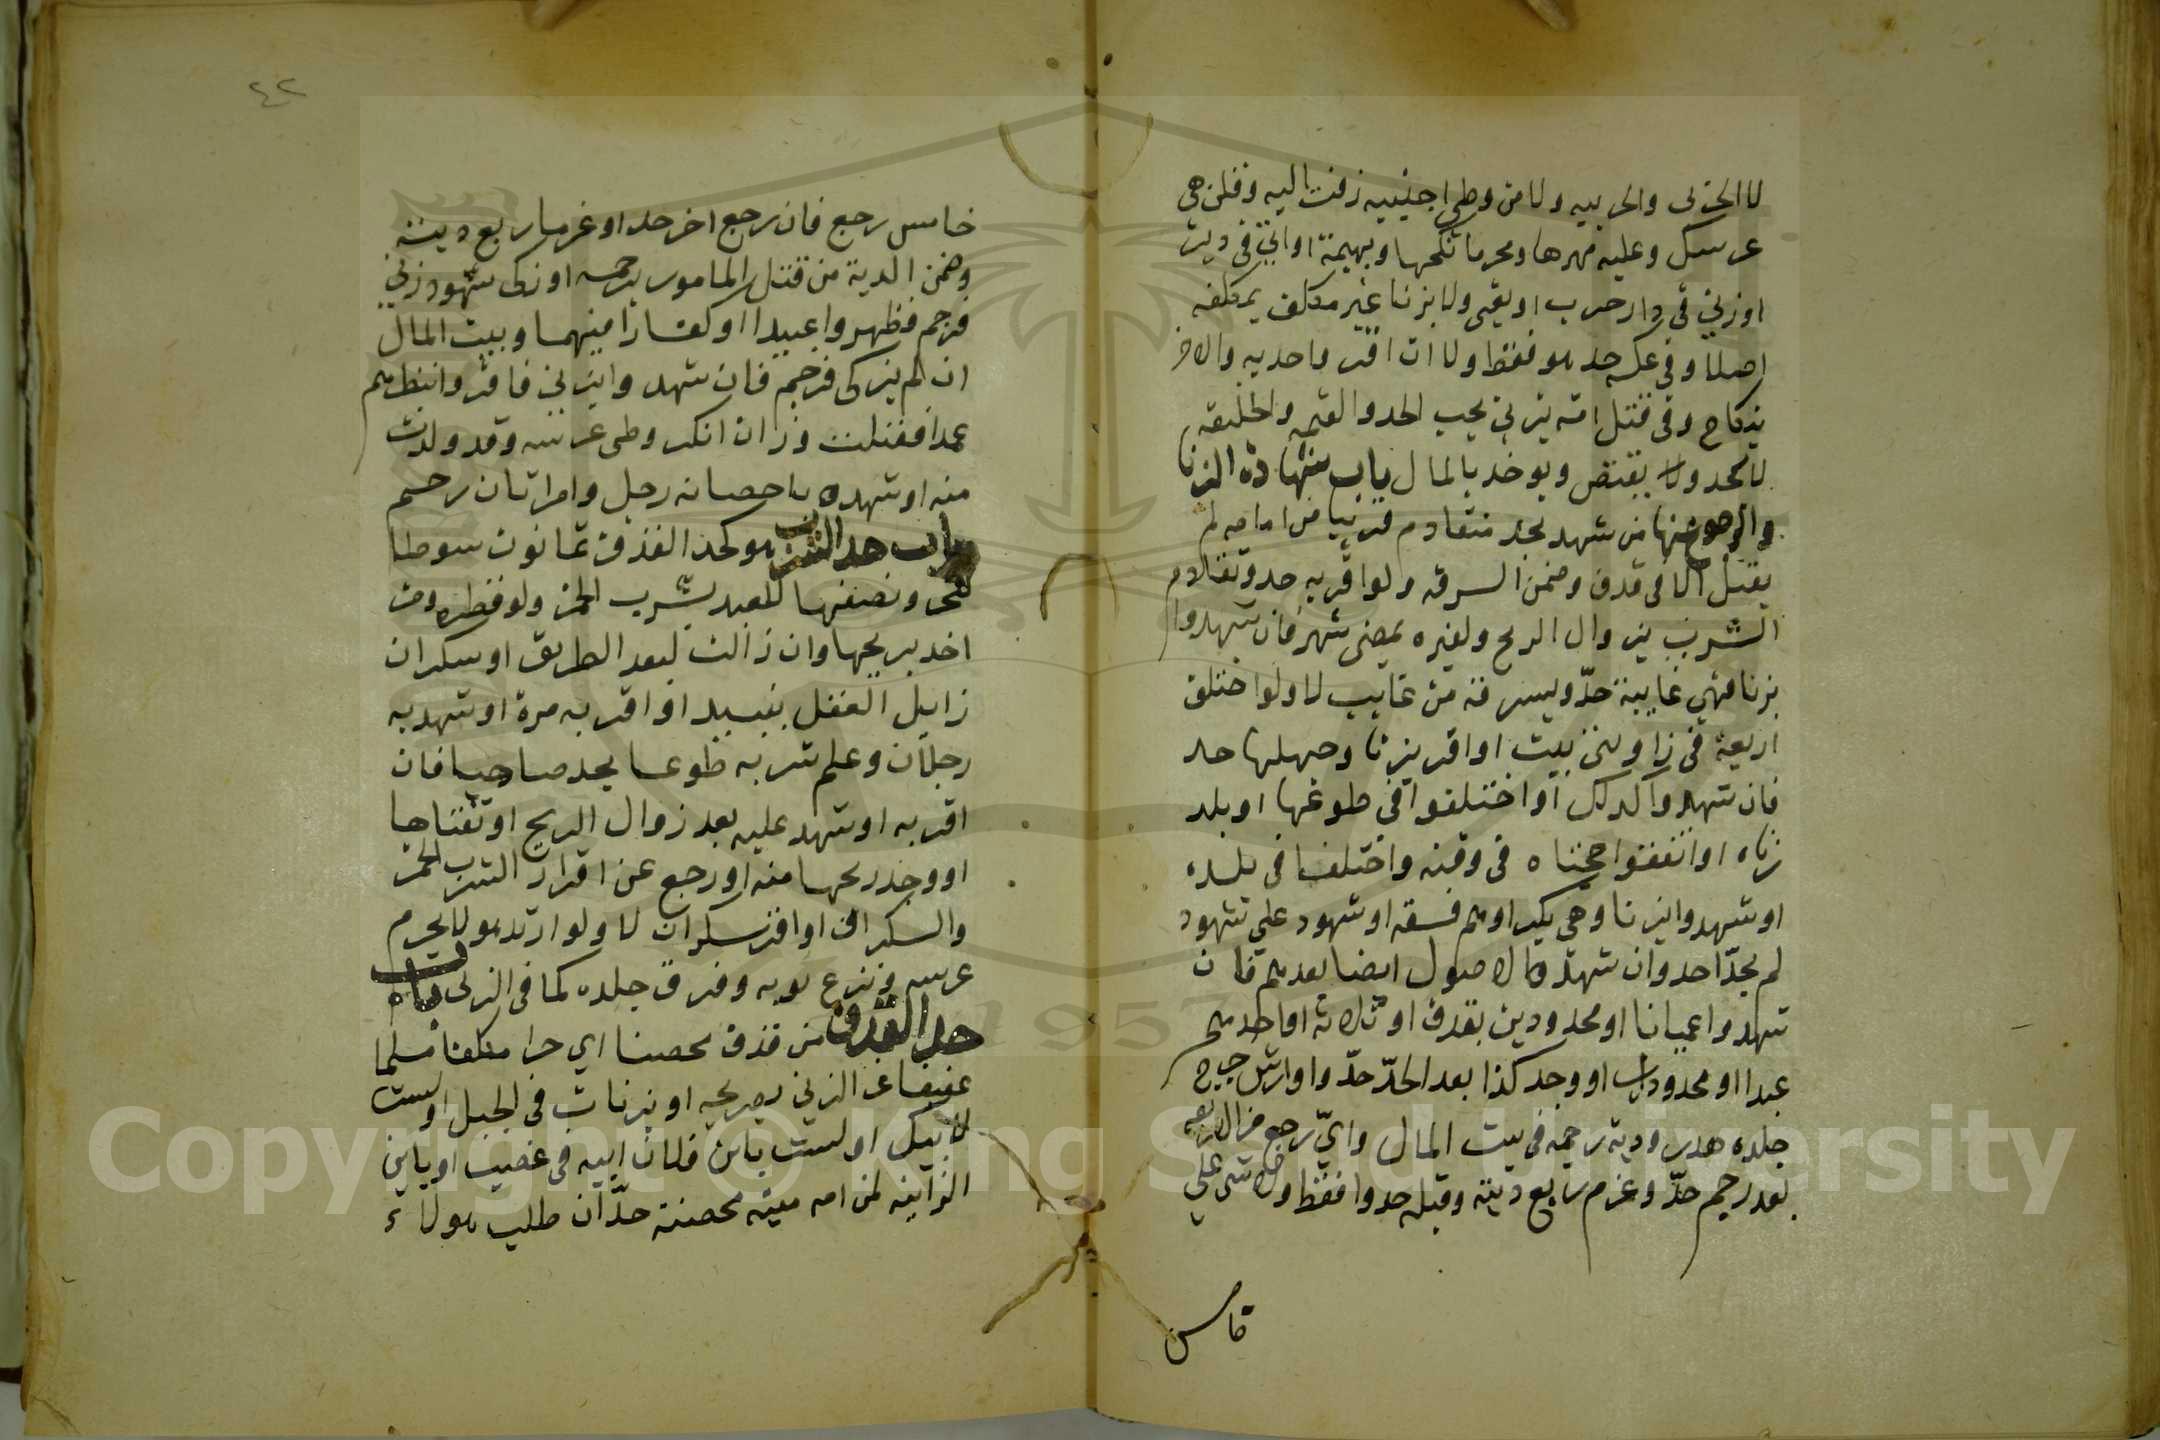 لا الحربى والحربيه ولا من وطى اجنبيه زفت اليه وقلن هى
عرسك وعليه مهرها ومحرما نكحها وبهيمة او اتى فى دبر
او زنى فى دار حرب او بغى ولا بزنا غير مكلف بمكلفه
اصلا وفى عكسه حد هو فقط ولا ان اقر واحد به والاخر
بنكاح وفى قتل امة بزنى يجب الحد والقيمه والخليفه
لا يحد ولا يقتص ويوخذ بالمال باب شهادة الزنا
والرجوع عنها من شهد بحد متقادم قريبا من امامه لم
يقبل الا فى قذف وضمن السرقه ولو اقر به حد وتقادم
الشرب بزوال الريح ولغيره بمضى شهر فان شهدوا
بزنا وهى غايبة حدّ وبسرقة من غايب لا ولو اختلف
اربعة فى زاويتى بيت او اقر بزنا وجهلها حد
فان شهدوا كذلك او اختلفوا فى طوعها او بلد
زناه او اتفقتوا حجتاه فى وقته واختلفا فى بلده
او شهدوا بزنا وهى بكر او هم فسقه او شهود على شهود
لم يحدّ احد وان شهد الاصول ايضا بعدهم فان
شهدوا عميانا او محدودين بقذف او ثلاثة او احدهم
عبدا او محدود او وجد كذا بعد الحدّ حدّوا وارش جرح
جلده هدر ودية رجمه فى بيت المال وايّ رجع من الاربعه
بعد رجم حدّ وغرم ربع ديته وقبله حدوا فقط ولا شى على
خامس
٤٢
خامس رجع فان رجع اخر حدا وغرما ربع ديته
وضمن الدية من قتل المامور برجمه او زكى شهود زنى
فرجم فظهروا عبيدا او كفارا منهما وبيت المال
ان لم يزكى فرجم فان شهدوا بزنى فاقروا بنظرهم
عمدا فقبلت وزان انكر وطى عرسه وقد ولدت
منه او شهد باحصانه رجل وامراتان رجم
باب حد الشرب هو كحد القذف ثمانون سوطا
للحر ونصفها للعبد بشرب الخمر ولو قطره ومن
اخذ بريحها وان زالت لبعد الطريق او سكران
زايل العقل بنبيد او اقر به مرة او شهد به
رجلان وعلم شربه طوعا يحد صاحيا فان
اقر به او شهد عليه بعد زوال الريح او تقياها
او وجد ريحها منه او رجع عن اقرار الشرب الخمر
والسكر او اقر سكران لا ولو ارتد هو لا يحرم
عرسه ونزع ثوبه وفرق جلده كما فى الزنى باب
حد القذف من قذف محصنا اي حرا مكلفا مسلما
عفيفا عن الزنى بصريحه او بزنات فى الجبل او لست
لابيك او لست بابن فلان ابيه فى غضب او يابن
الزانيه لمن امه ميته محصنة حدّ ان طلب هولاء
Copyright © King Saud University
1957